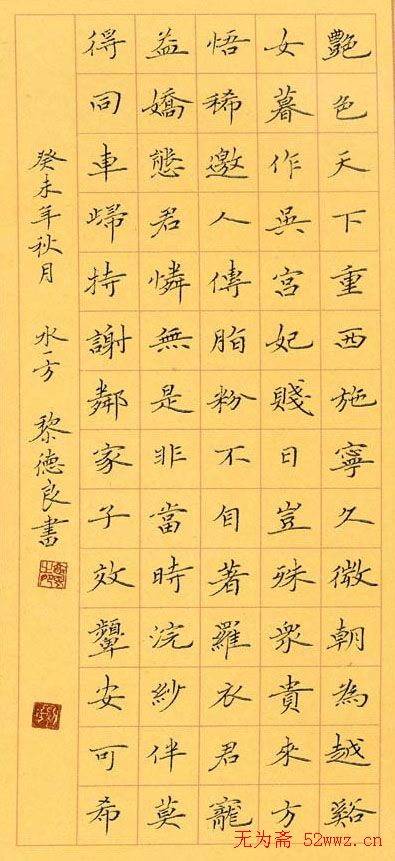 艷色天下重西施寧久微朝為越谿
女暮作吳宮妃賤日豈殊衆貴來方
悟稀邀人傅脂粉不自著羅衣君寵
益嬌態君憐無是非當時浣紗伴莫
得同車歸持謝鄰家子效顰安可希
癸未年秋月 水一方 黎德良書
无为斋 52wwz.cn